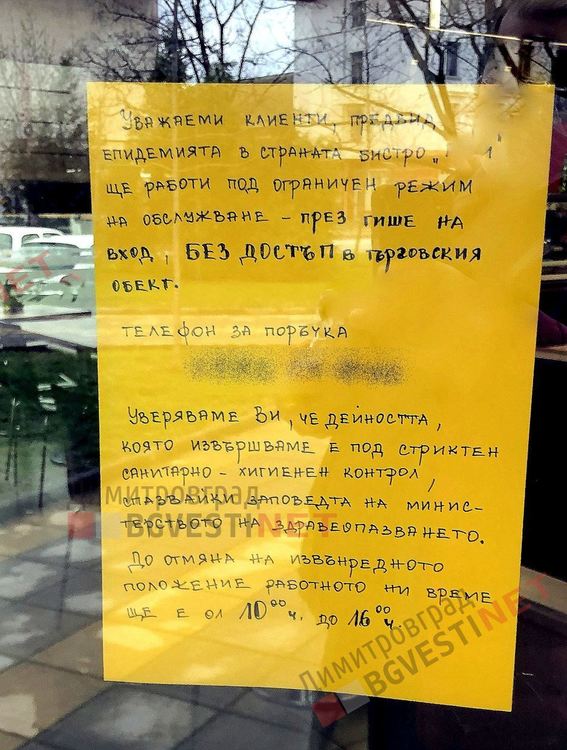 Уважаеми клиенти, предвид
епидемията в страната бистро „ "
ще работи под ограничен режим
на обслужване - през гише на
вход, БЕЗ ДОСТЪП в търговския
обект.
Телефон за поръчка
Уверяваме Ви, че дейността,
която извършваме е под стриктен
санитарно - хигиенен контрол,
спазвайки заповедта на минис-
терството на здравеопазването.
До отмяна на извънредното
положение работното ни време
ще е от 10⁰⁰ ч. до 16⁰⁰ ч.
Димитровград
BGVESTINET
Димитровград
BGVESTINET